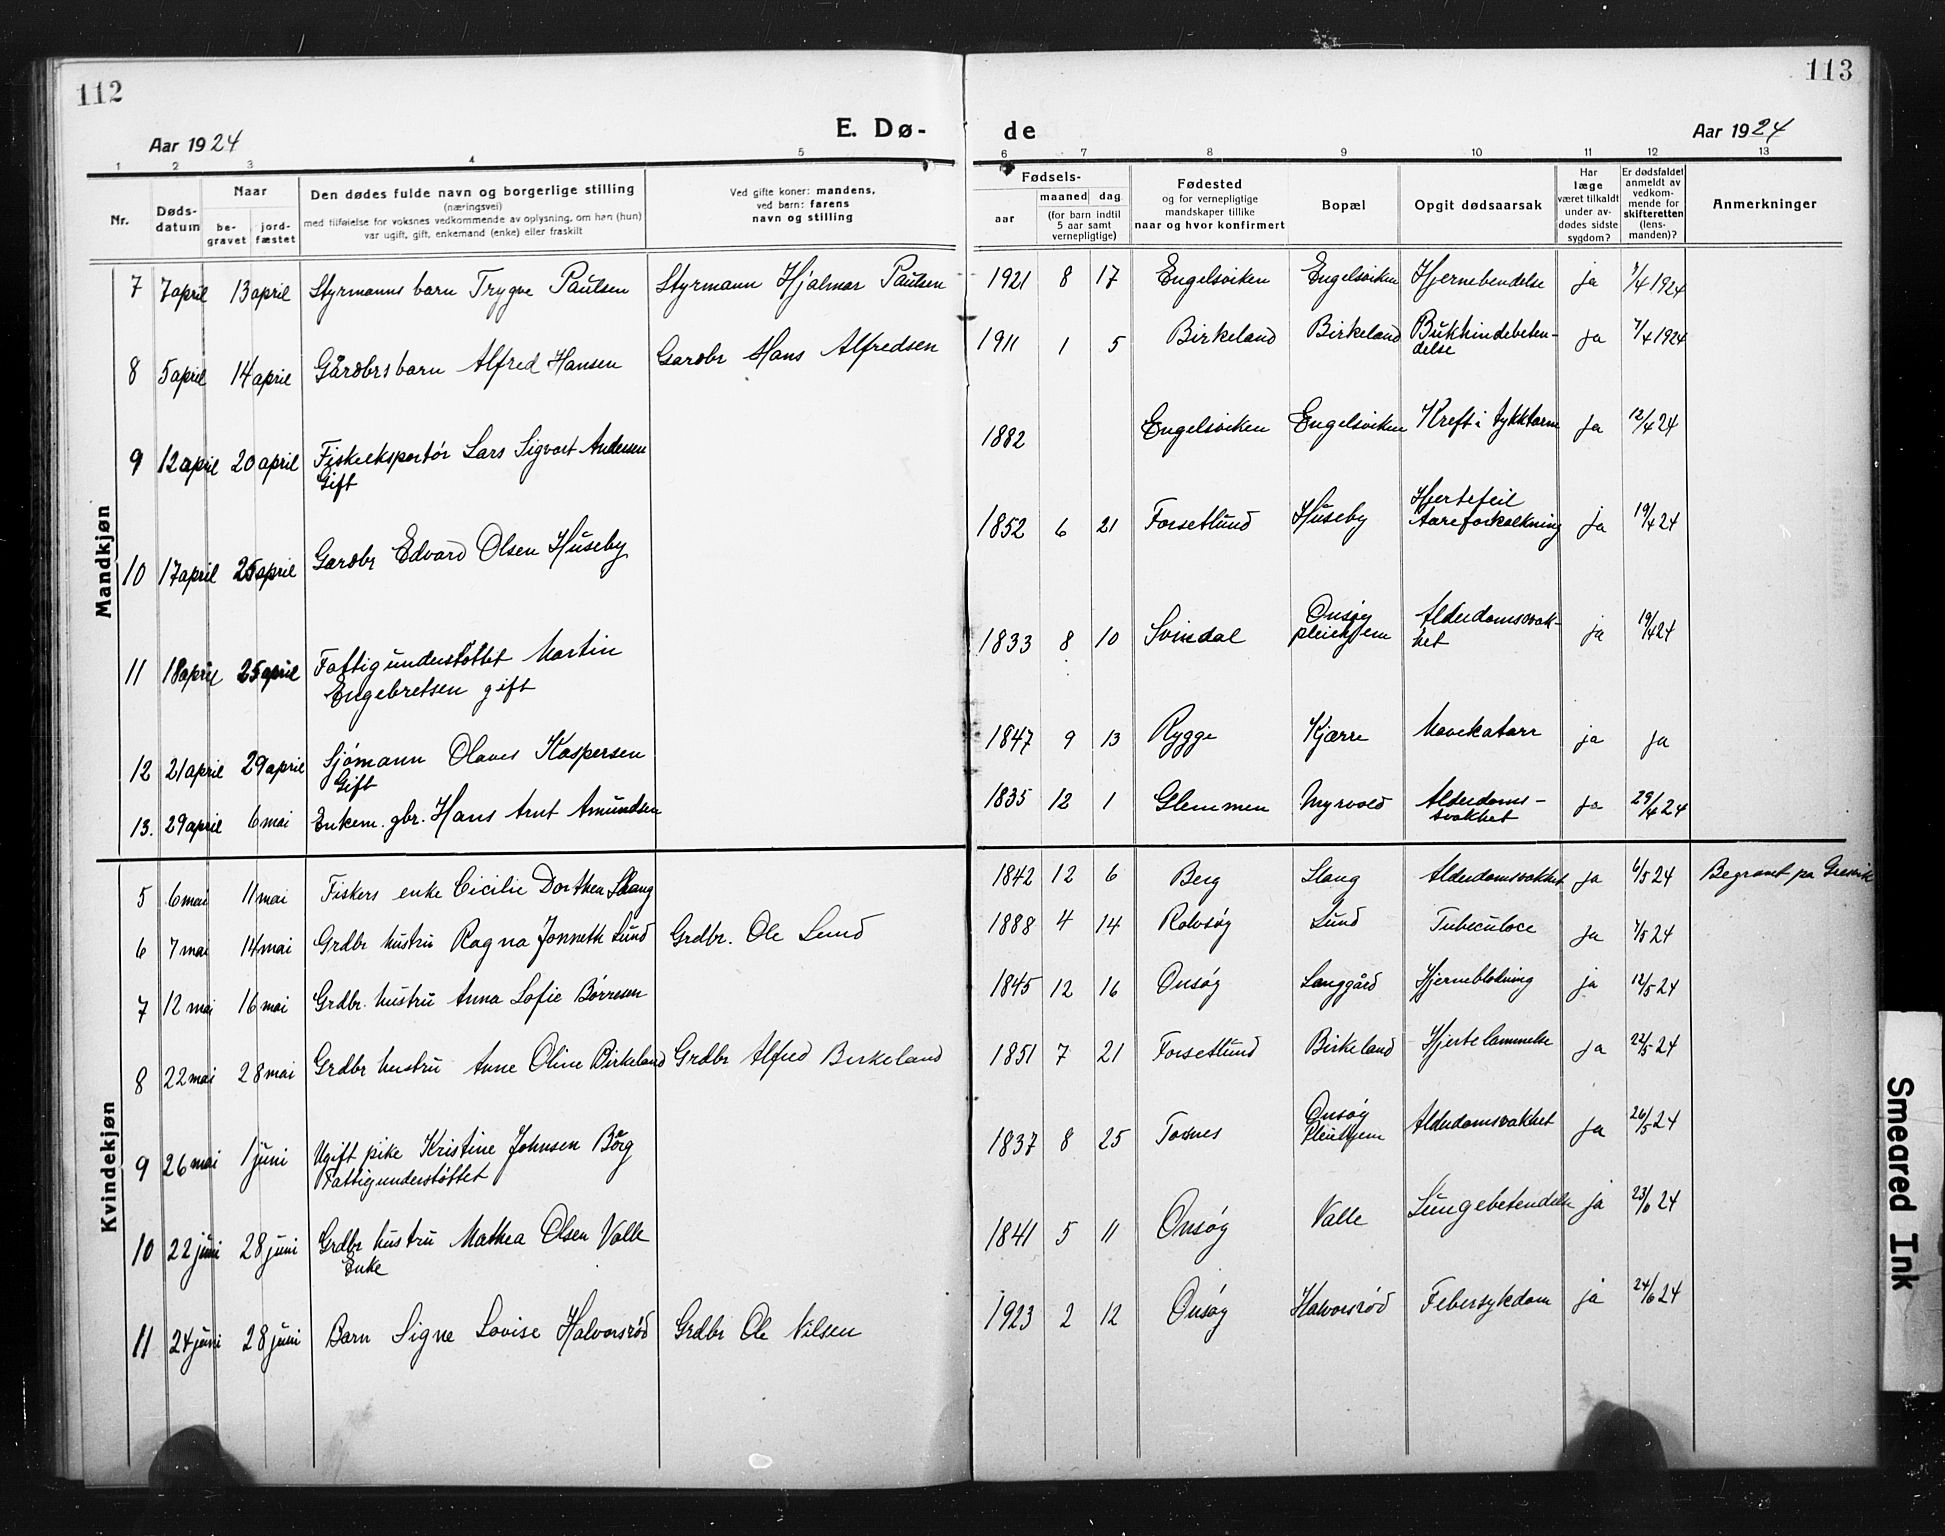 112
Aar 1924
E. Dø-
1 2 3 4 5
Nr.
Døds-
datum
Naar
be-
gravet
jord-
fæstet
Den dødes fulde navn og borgerlige stilling
(næringsvei)
med tilføielse for voksnes vedkommende av oplysning, om han (hun)
var ugift, gift, enkemand (enke) eller fraskilt
Ved gifte koner: mandens,
ved barn: farens
navn og stilling
Mandkjøn
7 7 april 13 april Styrmanns barn Trygve Paulsen Styrmann Hjalmar Paulsen
8 5 april 14 april Gårdbrs barn Alfred Hansen Gardbr Hans Alfredsen
9 12 april 20 april Fiskeeksportør Lars Sigvart Andersen
Gift
10 17 april 25 april Gardbr Edvard Olsen Huseby
11 18 april 25 april Fattigunderstøttet Martin
Engebretsen gift
12 21 april 29 april Sjømann Olaves Kaspersen
Gift
13. 29 april 6 mai Enkem. gbr. Hans Arnt Amundsen
Kvindekjøn
5 6 mai 11 mai Fiskers enke Cicilie Dorthea Slang
6 7 mai 14 mai Grdbr hustru Ragna Jonnette Lund Grdbr. Ole Lund
7 12 mai 16 mai Grdbr. hustru Anna Sofie Børresen
8 22 mai 28 mai Grdbr hustru Anne Oline Birkeland Grdbr Alfred Birkeland
9 26 mai 1 juni Ugift pike Kristine Johnsen Borg
Fattigunderstøttet
10 22 juni 28 juni Grdbr hustru Mathea Olsen Valle
Enke
11 24 juni 28 juni Barn Signe Lovise Halvorsrød Grdbr Ole Nilsen
113
de
Aar 1924
6 7 8 9 10 11 12 13
Fødsels-
aar
maaned dag
(for barn indtil
5 aar samt
vernepligtige)
Fødested
og for vernepligtige
mandskaper tillike
naar og hvor konfirmert
Bopæl
Opgit dødsaarsak
Har
læge
været tilkaldt
under av-
dødes sidste
sygdom?
Er dødsfaldet
anmeldt av
vedkom-
mende for
skifteretten
(lens-
manden)?
Anmerkninger
1921 8 17 Engelsviken Engelsviken Hjernebendelse ja 7/4 1924
1911 1 5 Birkeland Birkeland Bukhindebeten-
delse ja 7/4 1924
1882 Engelsviken Engelsviken Kreft i tykktarm ja 12/4 24
1852 6 21 Forsetlund Huseby Hjertefeil
Aareforkalkning ja 19/4 24
1833 8 10 Svindal Onsøy
pleiehjem Alderdomssvak-
het ja 19/4 24
1847 9 13 Rygge Kjærre Mavekatarr ja ja
1835 12 1 Glemmen Myrvold Alderdoms-
svakhet ja 29/4 24
1842 12 6 Berg Slang Alderdomsvakhet ja 6/5 24 Begravet pa Gresvik
1888 4 14 Rolvsøy Lund Tubeculoce ja 7/5 24
1845 12 16 Onsøy Langgård Hjerneblødning ja 12/5 24
1851 7 21 Forsetlund Birkeland Hjertelammelse ja 22/5 24
1837 8 25 Torsnes Onsøy
Pleiehjem Alderdomsvakhet ja 26/5 24
1841 5 11 Onsøy Valle Lungebetendelse ja 23/6 24
1923 2 12 Onsøy Halvorsrød Febersykdom ja 24/6 24
Smeared Ink